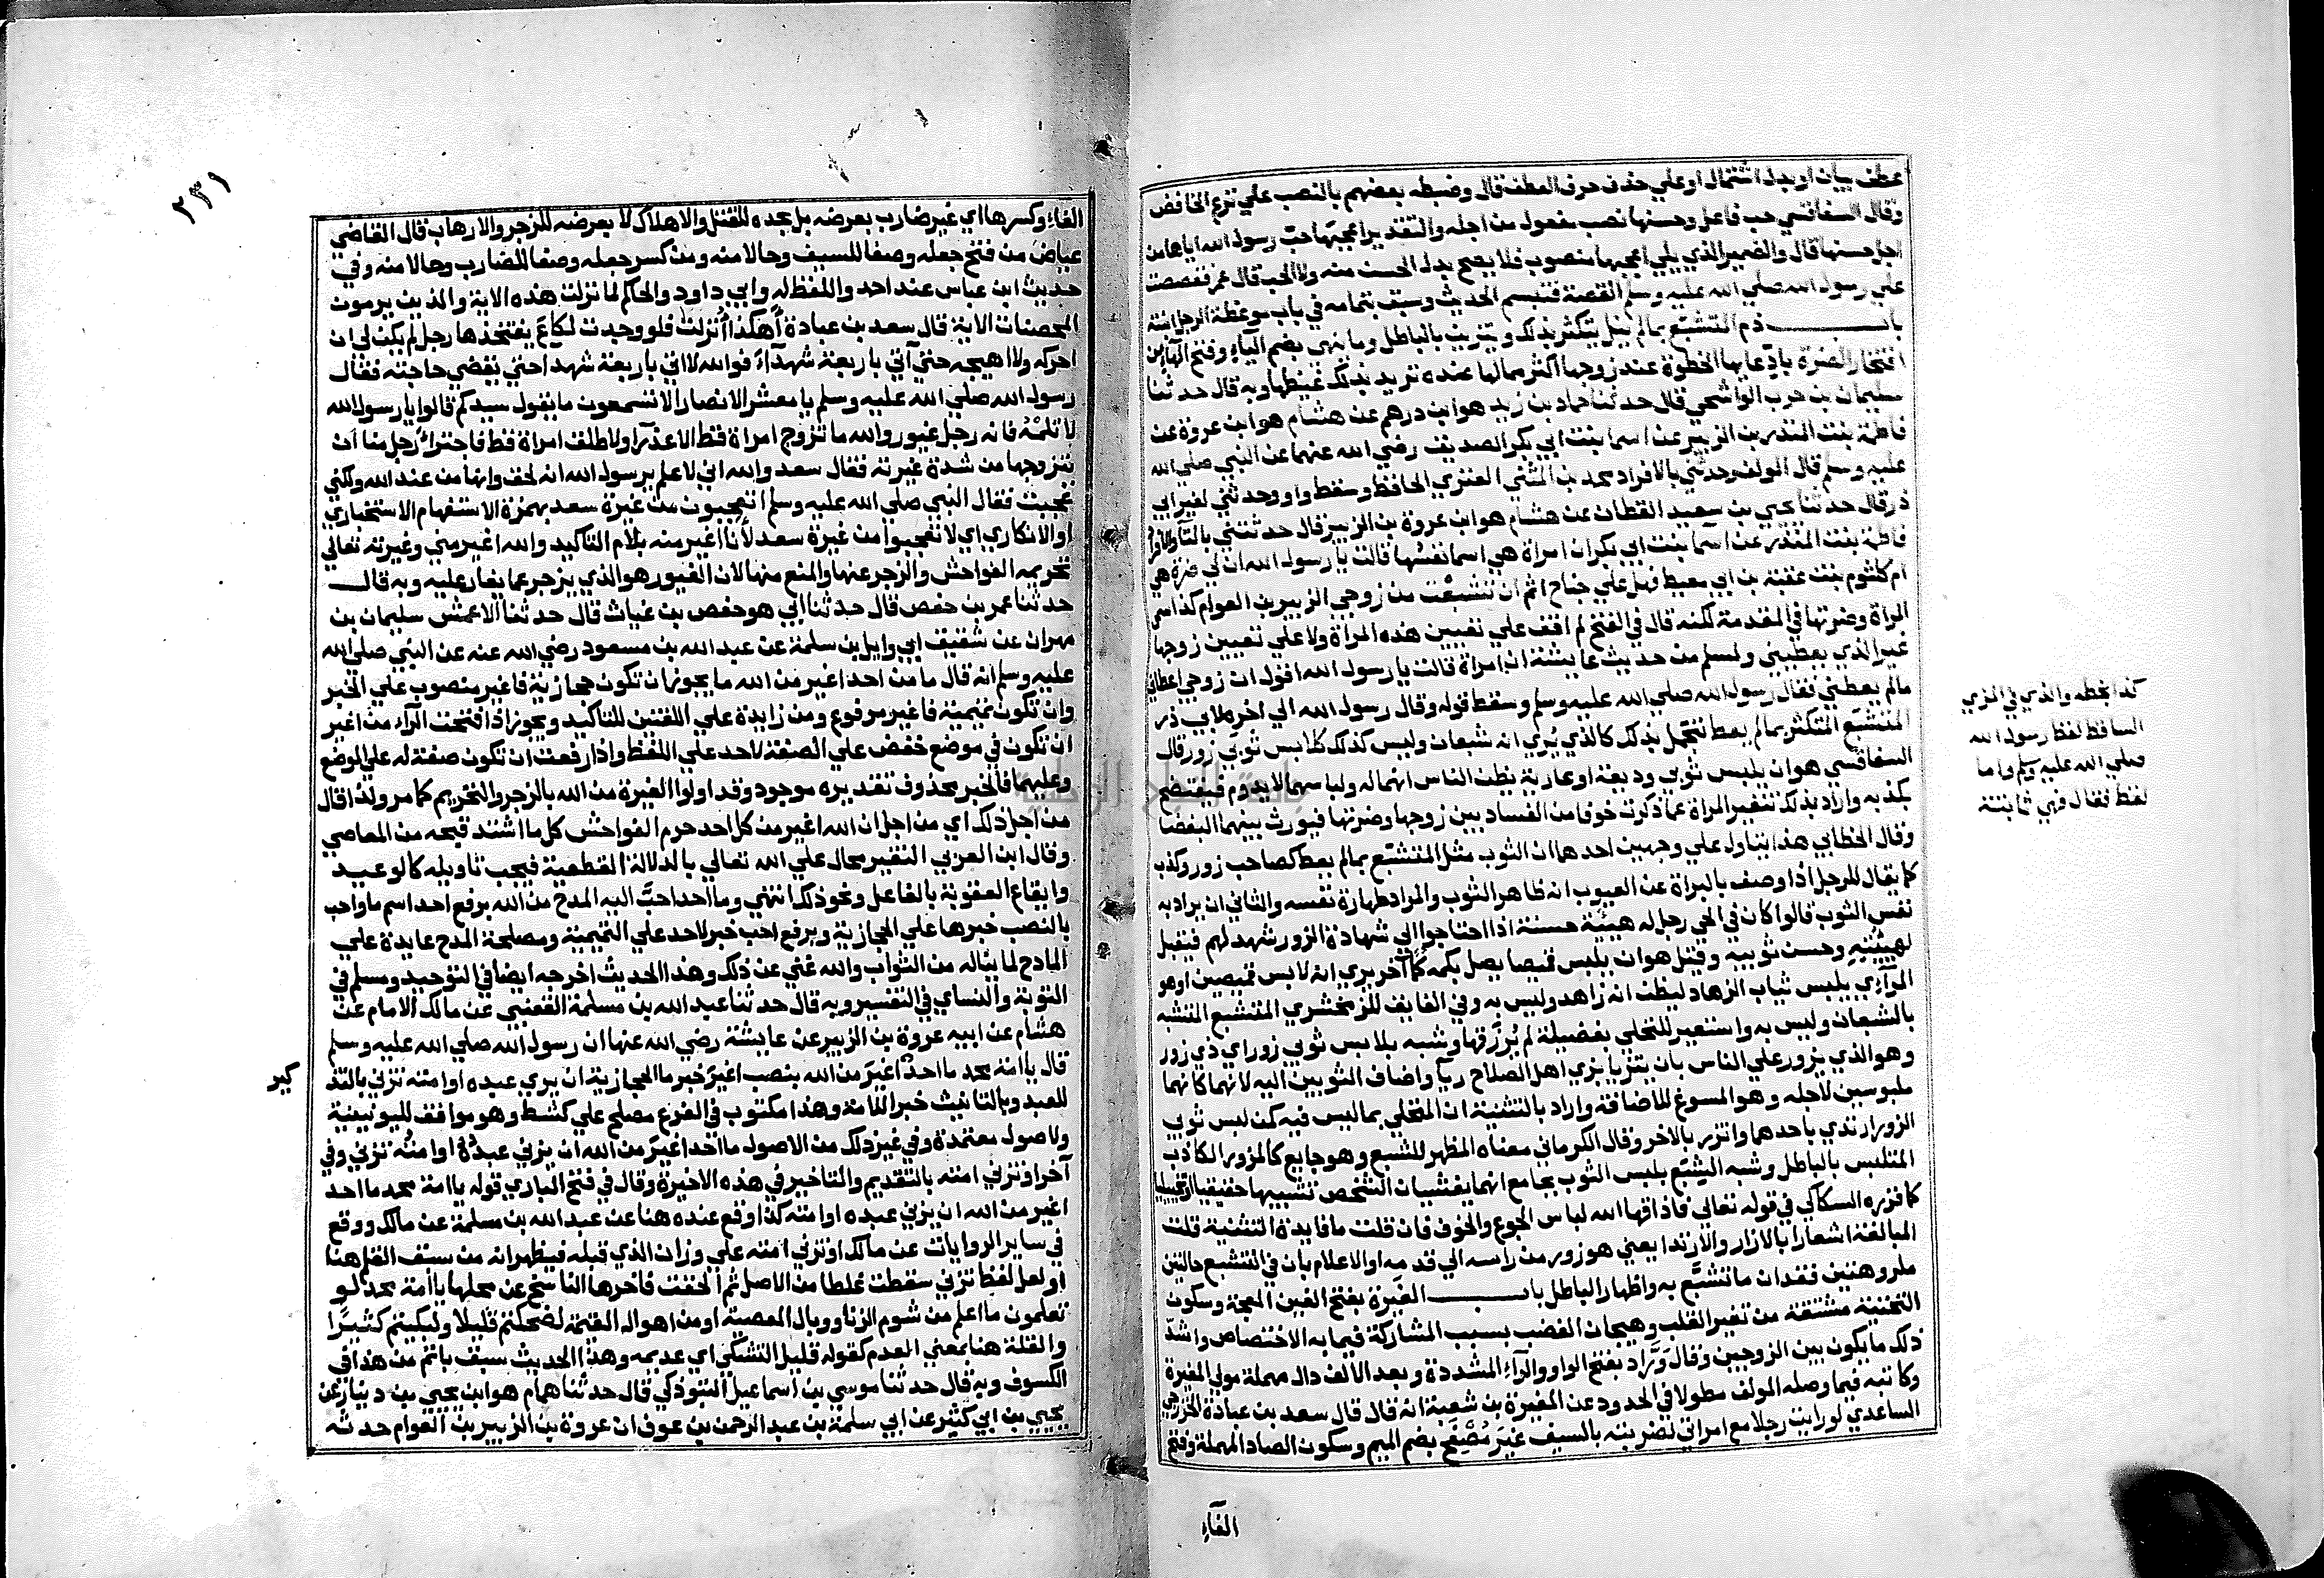 عطف بيان او بدل اشتمال او علي حذف حرف العطف قال وضبطه بعضهم بالنصب علي نزع الخافض
وقال السفاقسي حب فاعل وحسنها نصب مفعول من اجله والتقدير اعجبها حب رسول الله اياها من
اجل حسنها قال والضمير الذي يلي اعجبها منصوب فلا يصح بدل الحسن منه ولا الحب قال عمر فقصصت
علي رسول الله صلي الله عليه وسلم القصة فتبسم الحديث وسبق بتمامه في باب موعظة الرجل ابنته
باب ذم المتشبع بمالم ينل يتكثر بذلك ويتزين بالباطل وما نهي بضم الياء وفتح الهاء من
افتخار الضرة بادعايها الحظوة عند زوجها اكثر مما لها عنده تريد بذلك غيظها وبه قال حدثنا
سليمان بن حرب الواشحي قال حدثنا حماد بن زيد هو ابن درهم عن هشام هو ابن عروة عن
فاطمة بنت المنذر بن الزبير عن اسما بنت ابي بكر الصديق رضي الله عنهما عن النبي صلي الله
عليه وسلم قال المولف وحدثني بالافراد محمد بن المثني العنزي الحافظ وسقط واو وحدثني لغير ابي
ذر قال حدثنا يحيي بن سعيد القطان عن هشام هو ابن عروة بن الزبير قال حدثتني بالتا والافراد
فاطمة بنت المنذر عن اسما بنت ابي بكر ان امراة هي اسما نفسها قالت يا رسول الله ان لي ضرة هي
ام كلثوم بنت عقبة بن ابي معيط فهل علي جناح اثم ان تشبعت من زوجي الزبير بن العوام كذا سمي
المراة وضرتها في المقدمة لكنه قال في الفتح لم اقف علي تعيين هذه المراة ولا علي تعيين زوجها
غير الذي يعطيني ولمسلم من حديث عايشة ان امراة قالت يا رسول الله اقول ان زوجي اعطاني
مالم يعطني فقال رسول الله صلي الله عليه وسلم وسقط قوله وقال رسول الله الي اخره لابي ذر
المتشبع المتكثر بمالم يعط يتجمل بذلك كالذي يُري انه شبعان وليس كذلك كلابس ثوبي زور قال
السفاقسي هو ان يلبس ثوبي وديعة او عارية يظن الناس انهما له ولباسهما لا يدوم فيفتضح
بكذبه واراد بذلك تنفير المراة عما ذكرت خوفا من الفساد بين زوجها وضرتها فيورث بينهما البغضا
وقال الخطابي هذا يتاول علي وجهين احدهما ان الثوب مثل المتشبع بمالم يعط كصاحب زور وكذب
كما يقال للرجل اذا وصف بالبراة عن العيوب انه طاهر الثوب والمراد طهارة نفسه والثاني ان يراد به
نفس الثوب قالوا كان في الحي رجل له هيئة حسنة اذا احتاجوا الي شهادة الزور شهد لهم فيقبل
لهيئته وحسن ثوبيه وقيل هو ان يلبس قميصا يصل بكمه كمًا آخر يري انه لابس قميصين او هو
المرآءي يلبس ثياب الزهاد ليظن انه زاهد وليس به وفي الفايق للزمخشري المتشبع المتشبه
بالشبعان وليس به واستعير للتحلي بفضيلة لم يُرزقها وشبه بلابس ثوبي زور اي ذي زور
وهو الذي يزور علي الناس بان يتزيا بزي اهل الصلاح رياً واضاف الثوبين اليه لانهما كانهما
ملبوسين لاجله وهو المسوغ للاضافة واراد بالتثنية ان المتحلي بما ليس فيه كمن لبس ثوبي
الزور ارتدي باحدهما واتزر بالاخر وقال الكرماني معناه المظهر للشبع وهو جايع كالمزور الكاذب
المتلبس بالباطل وشبه الشبع بلبس الثوب بجامع انهما يغشيان الشخص تشبيها حقيقيا او تخييليا
كما قرره السكاكي في قوله تعالي فاذاقها الله لباس الجوع والخوف فان قلت ما فايدة التثنية قلت
المبالغة اشعارا بالازار والارتدا يعني هو زور من راسه الي قدمه او الاعلام بان في التشبع حالتين
مكروهتين فقدان ما تشبَّع به واظهار الباطل باب الغَيرة بفتح الغين المعجة وسكون
التحتية مشتقة من تغير القلب وهيجان الغضب بسبب المشاركة فيما به الاختصاص واشدّ
ذلك ما يكون بين الزوجين وقال وَرَّاد بفتح الواو والرآء المشددة وبعد الالف دال مهملة مولي المغيرة
وكاتبه فيما وصله المولف مطولا في الحدود عن المغيرة بن شعبة انه قال قال سعد بن عبادة الخزرجي
الساعدي لو رايت رجلا مع امراتي لضربته بالسيف غيرَ مُصْفَح بضم الميم وسكون الصاد المهملة وفتح
الفآء
كذا بخطه والذي في المزي
الساقط لفظ رسول الله
صلي الله عليه وسلم واما
لفظ فقال فهي ثابتة
٢٣١
الفاء وكسرها اي غير ضارب بعرضه بل بحده للقتل والاهلاك لا بعرضه للزجر والارهاب قال القاضي
عياض من فتح جعله وصفا للسيف وحالا منه ومن كسر جعله وصفا للضارب وحالا منه وفي
حديث ابن عباس عند احد واللفظ له وابي داود والحاكم لما نزلت هذه الاية والذين يرمون
المحصنات الاية قال سعد بن عبادة أهكذا أُنزلت فلو وجدت لكاع يفتخذها رجل لم يكن لي ان
احركه ولا اهيجه حتي آتي باربعة شهدآءَ فوالله لا اتي باربعة شهدا حتي يقضي حاجته فقال
رسول الله صلي الله عليه وسلم يا معشر الانصار الا تسمعون ما يقول سيدكم قالوا يا رسول الله
لا تلمْهُ فانه رجل غيور والله ما تزوج امراة قط الا عذراً ولا طلق امراة قط فاجترا رجل منا ان
يتزوجها من شدة غيرته فقال سعد والله اني لاعلم يرسول الله انه لحق وانها من عند الله ولكني
عجبت فقال النبي صلي الله عليه وسلم اتعجبون من غيرة سعد بهمزة الاستفهام الاستخباري
او الانكاري اي لا تعجبوا من غيرة سعد لأنا اغير منه بلام التاكيد والله اغير مني وغيرته تعالي
تحريمه الفواحش والزجر عنها والمنع منها لان الغيور هو الذي يزجر عما يغار عليه وبه قال
حدثنا عمر بن حفص قال حدثنا ابي هو حفص بن غياث قال حدثنا الاعمش سليمان بن
مهران عن شقيق ابي وايل بن سلمة عن عبد الله بن مسعود رضي الله عنه عن النبي صلي الله
عليه وسلم انه قال ما من احد اغير من الله ما يجوز ان تكون حجازية فاغير منصوب علي الخبر
وان تكون تميمية فاغير مرفوع ومن زايدة علي اللغتين للتاكيد ويجوز اذا فتحت الرآء من اغير
ان تكون في موضع خفض علي الصفة لاحد علي اللفظ واذا رفعت ان تكون صفة له علي الموضع
وعليهما فالخبر محذوف تقديره موجود وقد اولوا الغيرة من الله بالزجر والتحريم كما مر ولذا قال
من اجل ذلك اي من اجل ان الله اغير من كل احد حرم الفواحش كل ما اشتد قبحه من المعاصي
وقال ابن العربي التغير محال علي الله تعالي بالدلالة القطعية فيجب تاويله كالوعيد
وايقاع العقوبة بالفاعل ونحو ذلك انتهي وما احد احبَّ اليه المدح من الله برفع احد اسم ما واحب
بالنصب خبرها علي الحجازية وبرفع احب خبر لاحد علي التميمية ومصلحة المدح عايدة علي
المادح لما يناله من الثواب والله غني عن ذلك وهذا الحديث اخرجه ايضا في التوحيد ومسلم في
التوبة والنساي في التفسير وبه قال حدثنا عبد الله بن مسلمة القعنبي عن مالك الامام عن
هشام عن ابيه عروة بن الزبير عن عايشة رضي الله عنها ان رسول الله صلي الله عليه وسلم
قال يا امة محمد ما احدٌ اغيرَ من الله بنصب اغيرَ خبر ما الحجازية ان يري عبده او امته تزني بالتذ
كير
للعبد وبالتانيث خبرا للامة وهذا مكتوب في الفرع مصلح علي كشط وهو موافق لليونينية
ولاصول معتمدة وفي غير ذلك من الاصول ما احد اغيرَ من الله ان يزني عبدُهُ او امتُه تزني وفي
آخر او تزني امته بالتقديم والتاخير في هذه الاخيرة وقال في فتح الباري قوله يا امة محمد ما احد
اغير من الله ان يزني عبده او امته كذا وقع عنده هنا عن عبد الله بن مسلمة عن مالك ووقع
في ساير الروايات عن مالك او تزني امته علي وزان الذي قبله فيظهر انه من سبق القلم هنا
او لعل لفظ تزني سقطت غلطا من الاصل ثم الحقت فاخرها الناسخ عن محلها يا امة محمد لو
تعلمون ما اعلم من شوم الزنا ووبال المعصية او من اهوال القيمة لضحكتم قليلا ولبكيتم كثيرًا
والقلة هنا بمعني العدم كقوله قليل التشكي اي عديمه وهذا الحديث سبق باتم من هذا في
الكسوف وبه قال حدثنا موسي بن اسماعيل التبوذكي قال حدثنا همام هو ابن يحيي بن دينار عن
يحيي بن ابي كثير عن ابي سلمة بن عبد الرحمن بن عوف ان عروة بن الزبير بن العوام حدثه